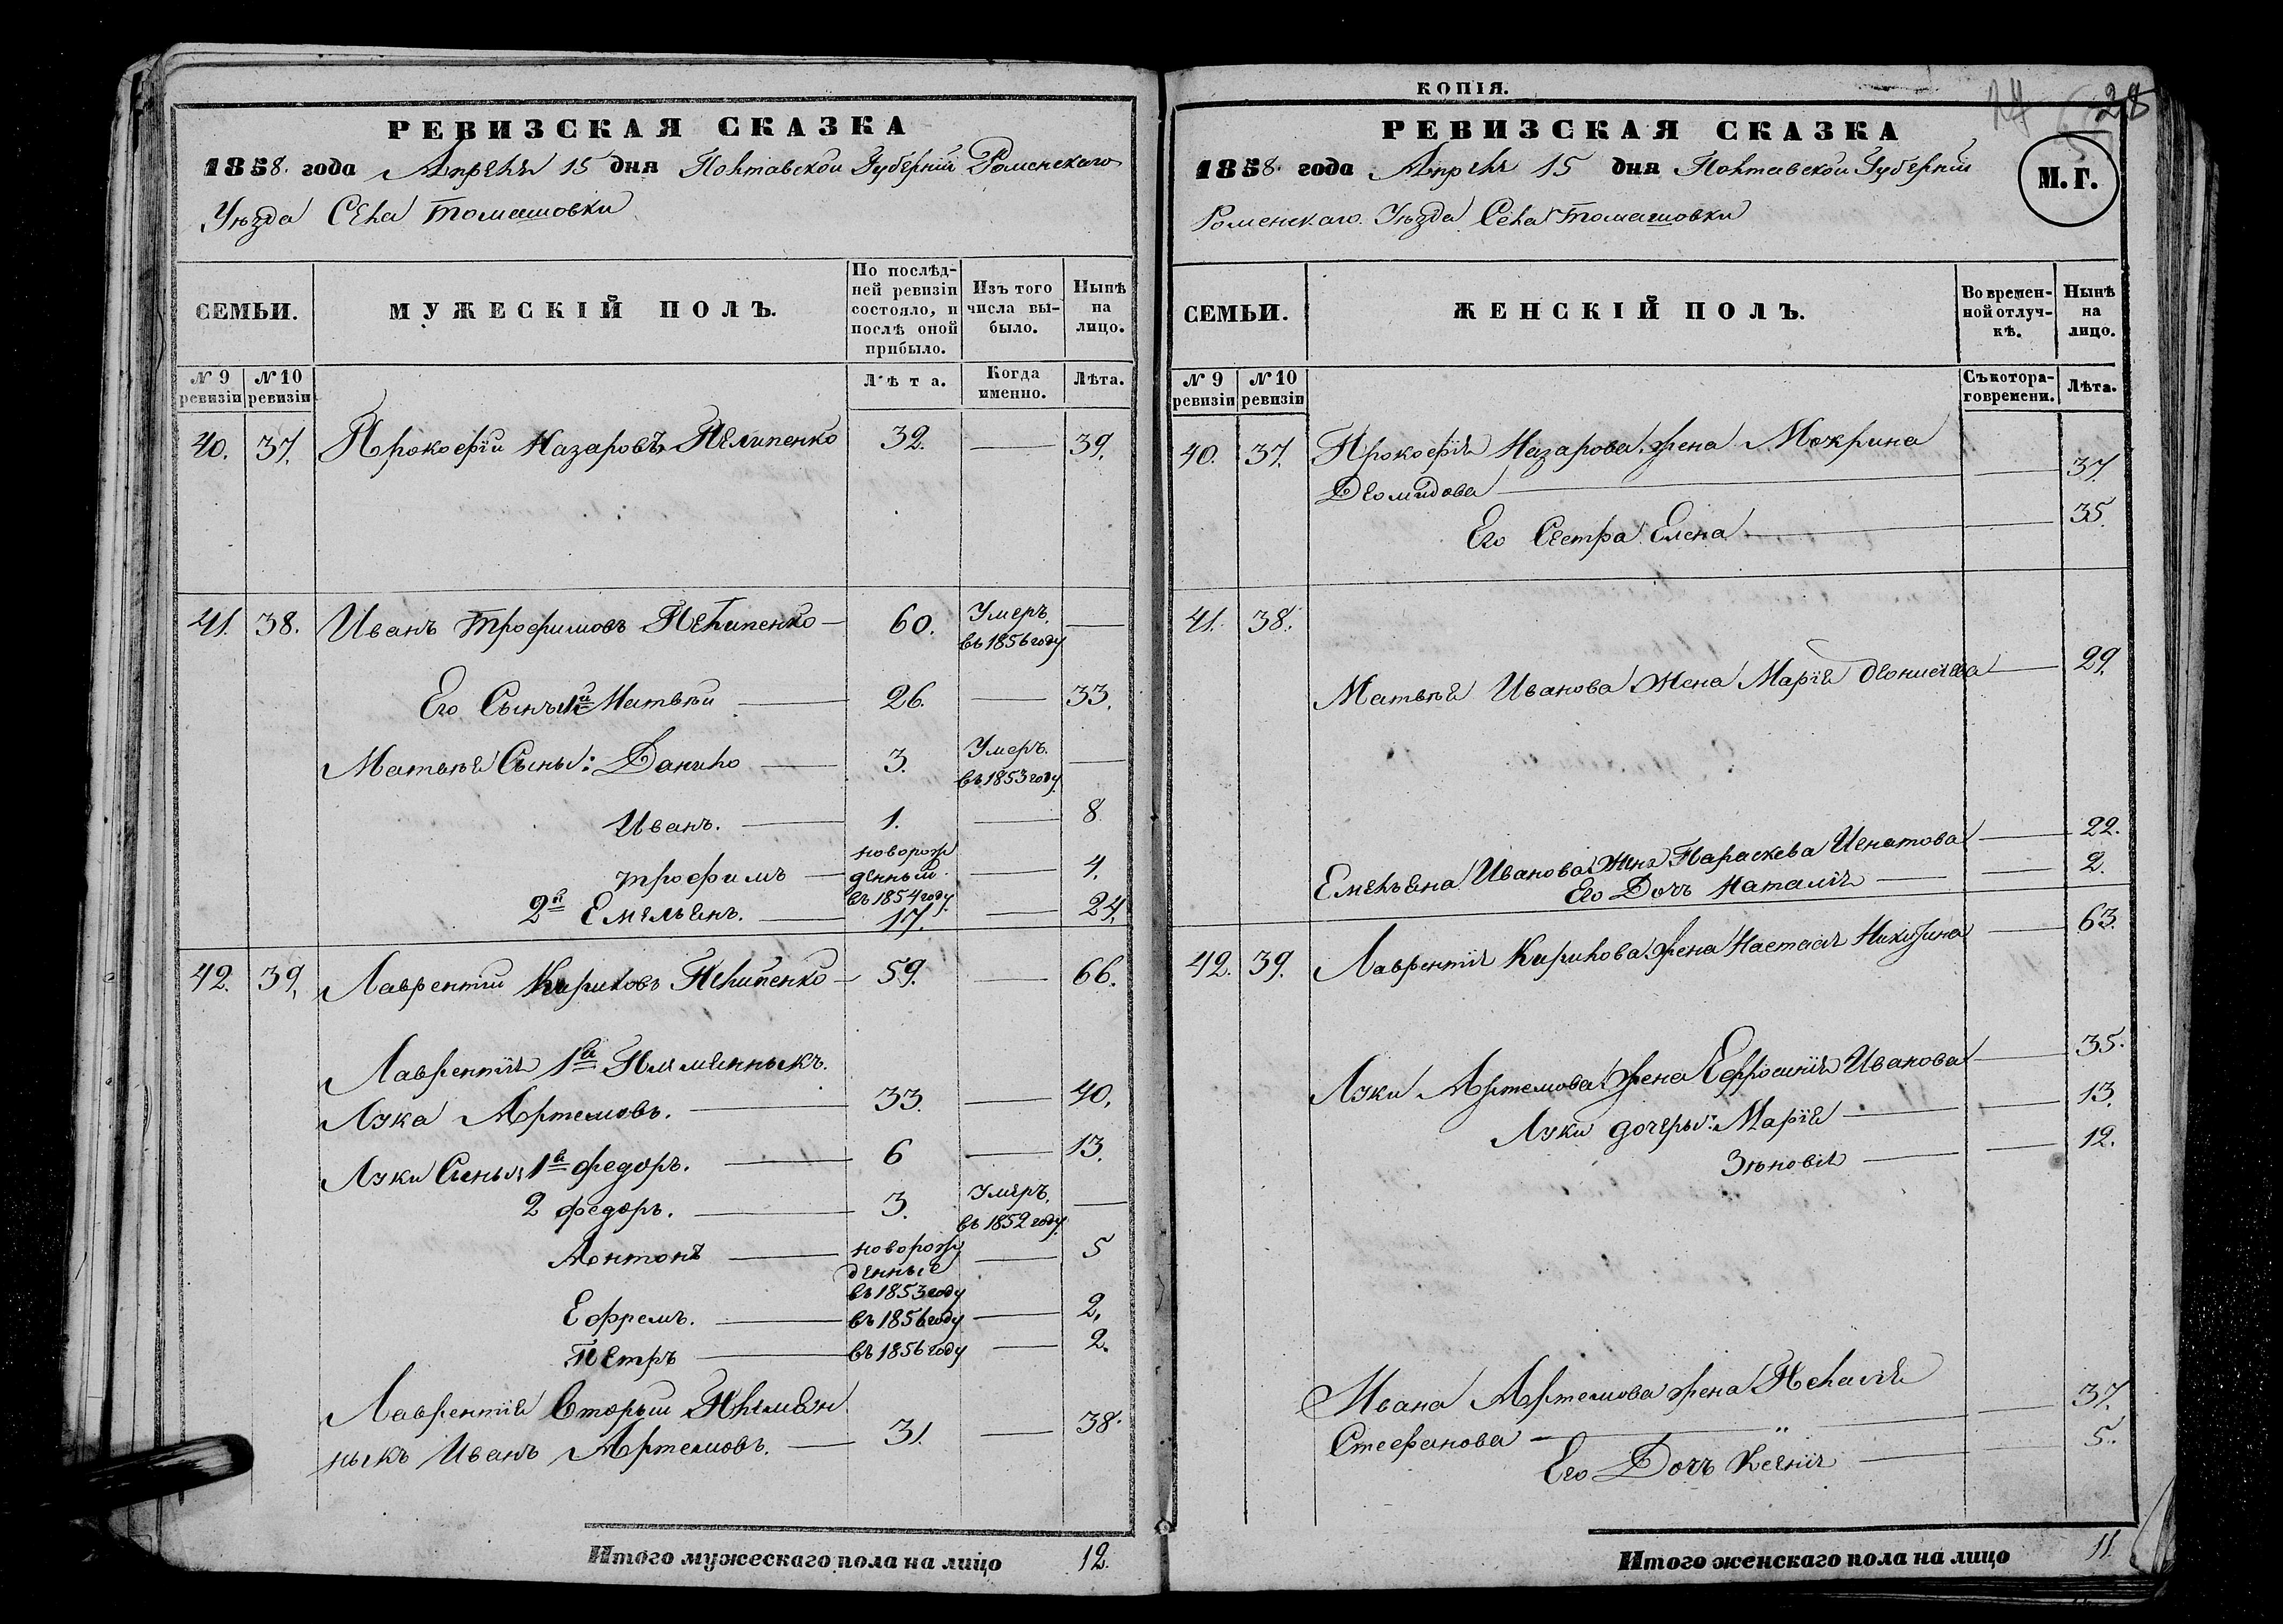 РЕВИЗСКАЯ СКАЗКА
1858. года Апреля 15 дня Полтавской Губерніи Роменскаго
Уѣзда Села Томашовки
СЕМЬИ.
МУЖЕСКІЙ ПОЛЪ.
По послѣд-
ней ревизіи
состояло, и
послѣ оной
прибыло.
Изъ того
числа вы-
было.
Нынѣ
на
лицо.
№ 9
ревизіи
№ 10
ревизіи
Лѣта.
Когда
именно.
Лѣта.
40. 37. Прокофій Назаровъ Пелипенко 32. — 39.
41. 38. Иванъ Трофимовъ Пелипенко — 60. Умеръ
въ 1856 году —
Его Сынъ 1й Матвѣй — 26. — 33.
Матвѣя Сыны: Данило — 3. Умеръ.
въ 1853 году —
Иванъ. — 1. — 8
Трофимъ — новорож
денный
въ 1854 году — 4.
2й Емельянъ. — 17. — 24.
42. 39. Лаврентій Кириловъ Пелипенко — 59. — 66.
Лаврентія 1й Племянныкъ.
Лука Артемовъ. — 33. — 40.
Луки Сыны 1й Федоръ. — 6 — 13.
2 Федоръ. — 3. Умеръ.
въ 1852 году —
Антонъ — новорож
денные
въ 1853 году — 5
Ефремъ. — въ 1856 году — 2.
Петръ — въ 1856 году — 2.
Лаврентія Вторый Племян
ныкъ Иванъ Артемовъ. — 31. — 38.
Итого мужескаго пола на лицо 12.
КОПІЯ.
28
РЕВИЗСКАЯ СКАЗКА
1858. года Апреля 15 дня Полтавской Губерніи
Роменскаго Уѣзда Села Томашовки
М. Г.
СЕМЬИ.
ЖЕНСКІЙ ПОЛЪ.
Во времен-
ной отлуч-
кѣ.
Нынѣ
на
лицо.
№ 9
ревизіи
№ 10
ревизіи
Съ котора-
го времени.
Лѣта.
40. 37. Прокофія Назарова жена Мокрина
Деомидова — 37.
Его Сестра Елена — 35.
41. 38.
Матвѣя Иванова Жена Марія Деонисіева — 29.
Емельяна Иванова Жена Параскева Игнатова — 22.
Его Дочъ Наталія — 2.
42. 39. Лаврентія Кирилова жена Настасія Никитина — 63.
Луки Артемова жена Ефросинія Иванова — 35.
Луки дочеры: Марія — 13.
Зѣновія — 12.
Ивана Артемова жена Пелагія
Стефанова — 37.
Его Дочъ Ксенія — 5.
Итого женскаго пола на лицо 11.